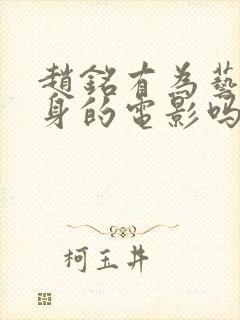 趙銘有為藝
身的電影嗎
柯玉井